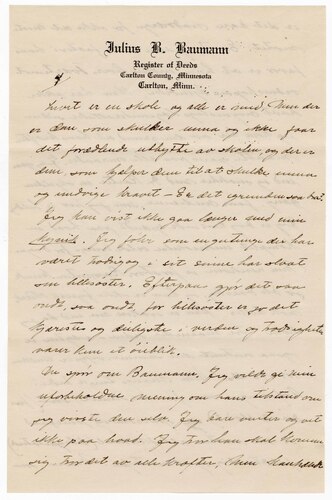 Julius B. Baumann
Register of Deeds
Carlton County, Minnesota
Carlton, Minn.
4
livet er en skole og alle er med, Men der
er dem som skulker unna og ikke faar
det forædlende utbytte av skolen, og der er
dem som hjelper dem til at skulke unna
og undvige kravet – Er det igrunden saa bra?
Jeg kan vist ikke gaa længer med min
. Jeg føler som en guttunge der har
været uskikkelig og i sit sinne har slaat
sin lillesøster. Efterpaa gjør det saa
ondt, saa ondt, for lillesøster er jo det
kjæreste og deiligste i verden og
varer kun et øieblik.
De spør om Baumann. Jeg vilde gi min
uforbeholdne mening om hans tilstand om
jeg visste den selv. Jeg bare venter og vet
ikke paa hvad. Jeg tror han skal komme
sig, tror det av alle kræfter, Men